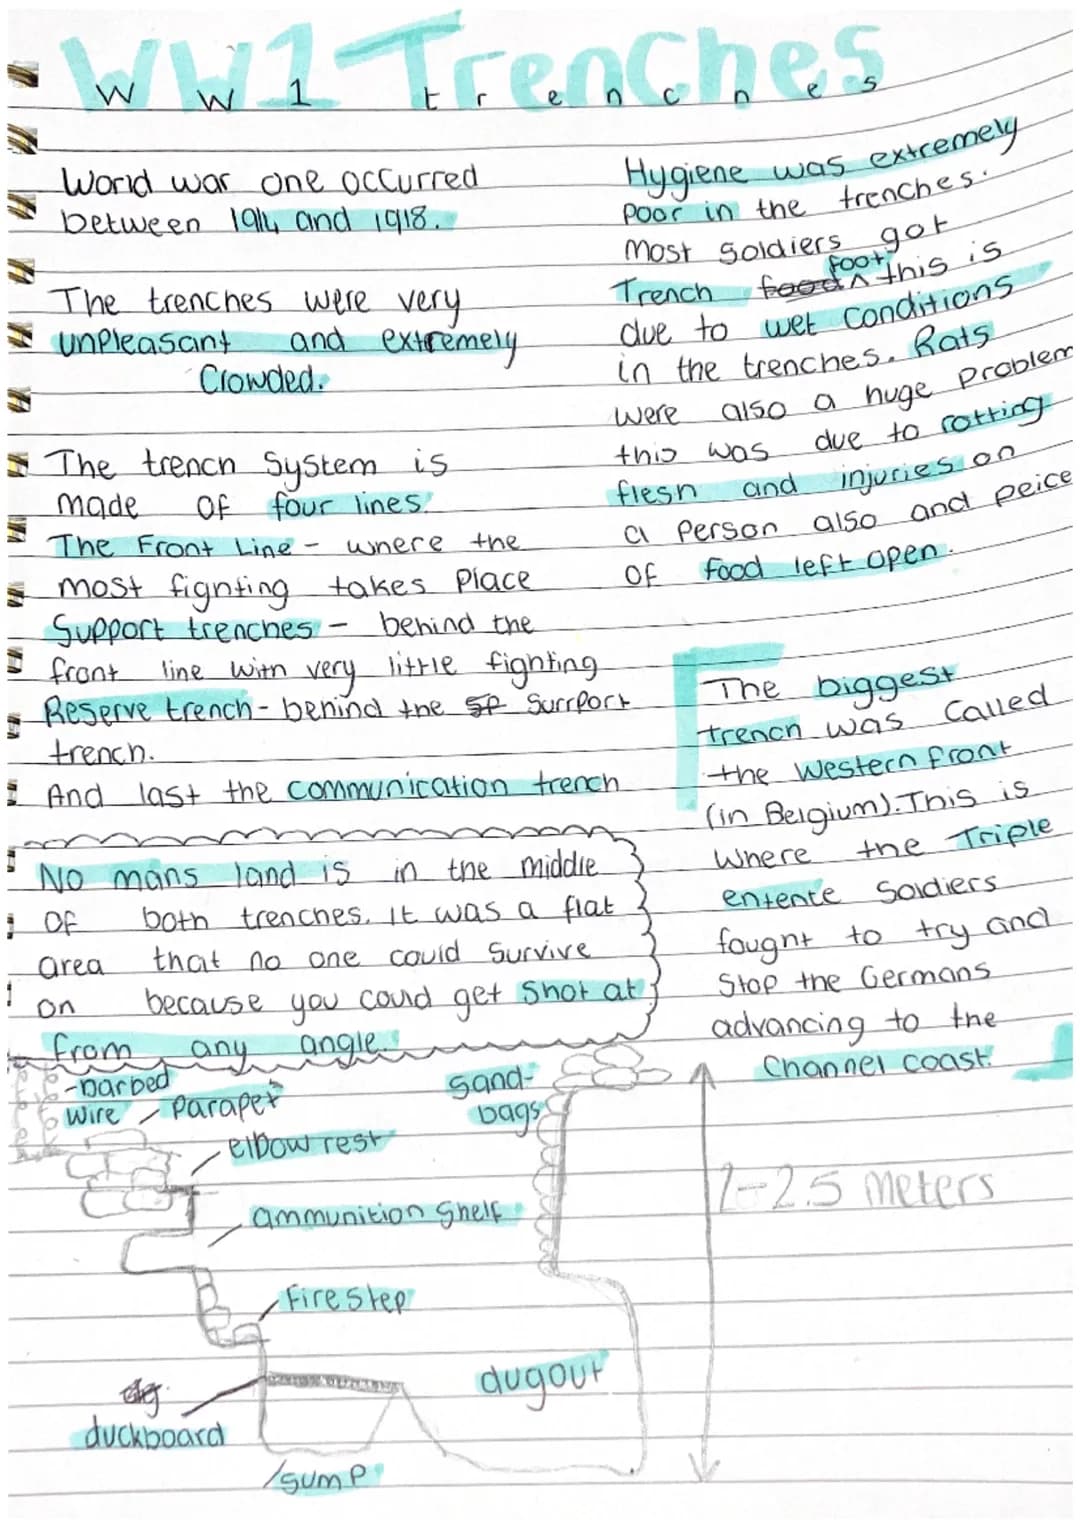 WW1 Trenches
WW1 trenches
World war one occurred
between 1914 and 1918.
The trenches were very
unpleasant and extremely
Crowded.
The trench System is
made OF four lines.
The Front Line - where the
most fighting takes Place
Support trenches - behind the
front line with very little fighting
Reserve trench - behind the SP Surrport
trench.
And last the communication trench
No mans land is in the middle
OF both trenches. It was a flat
area that no one could Survive
on because you could get Shot at
from any angle.
Hygiene was extremely
Poor in the trenches.
most soldiers got
Trench food foot this is
due to wet Conditions
in the trenches. Rats
were also a huge Problem
this was due to rotting
flesh and injuries on
a Person also and peice
OF food left open.
The biggest
trench was Called
the Western front
(in Belgium). This is
where the Triple
entente Soldiers
fought to try and
Stop the Germans
advancing to the
Channel coast.
-barbed
wire
Parapet
elbow rest
ammunition Shelf
fire Step
duckboard
sump
Sand-
bags
dugout
2-2.5 Meters